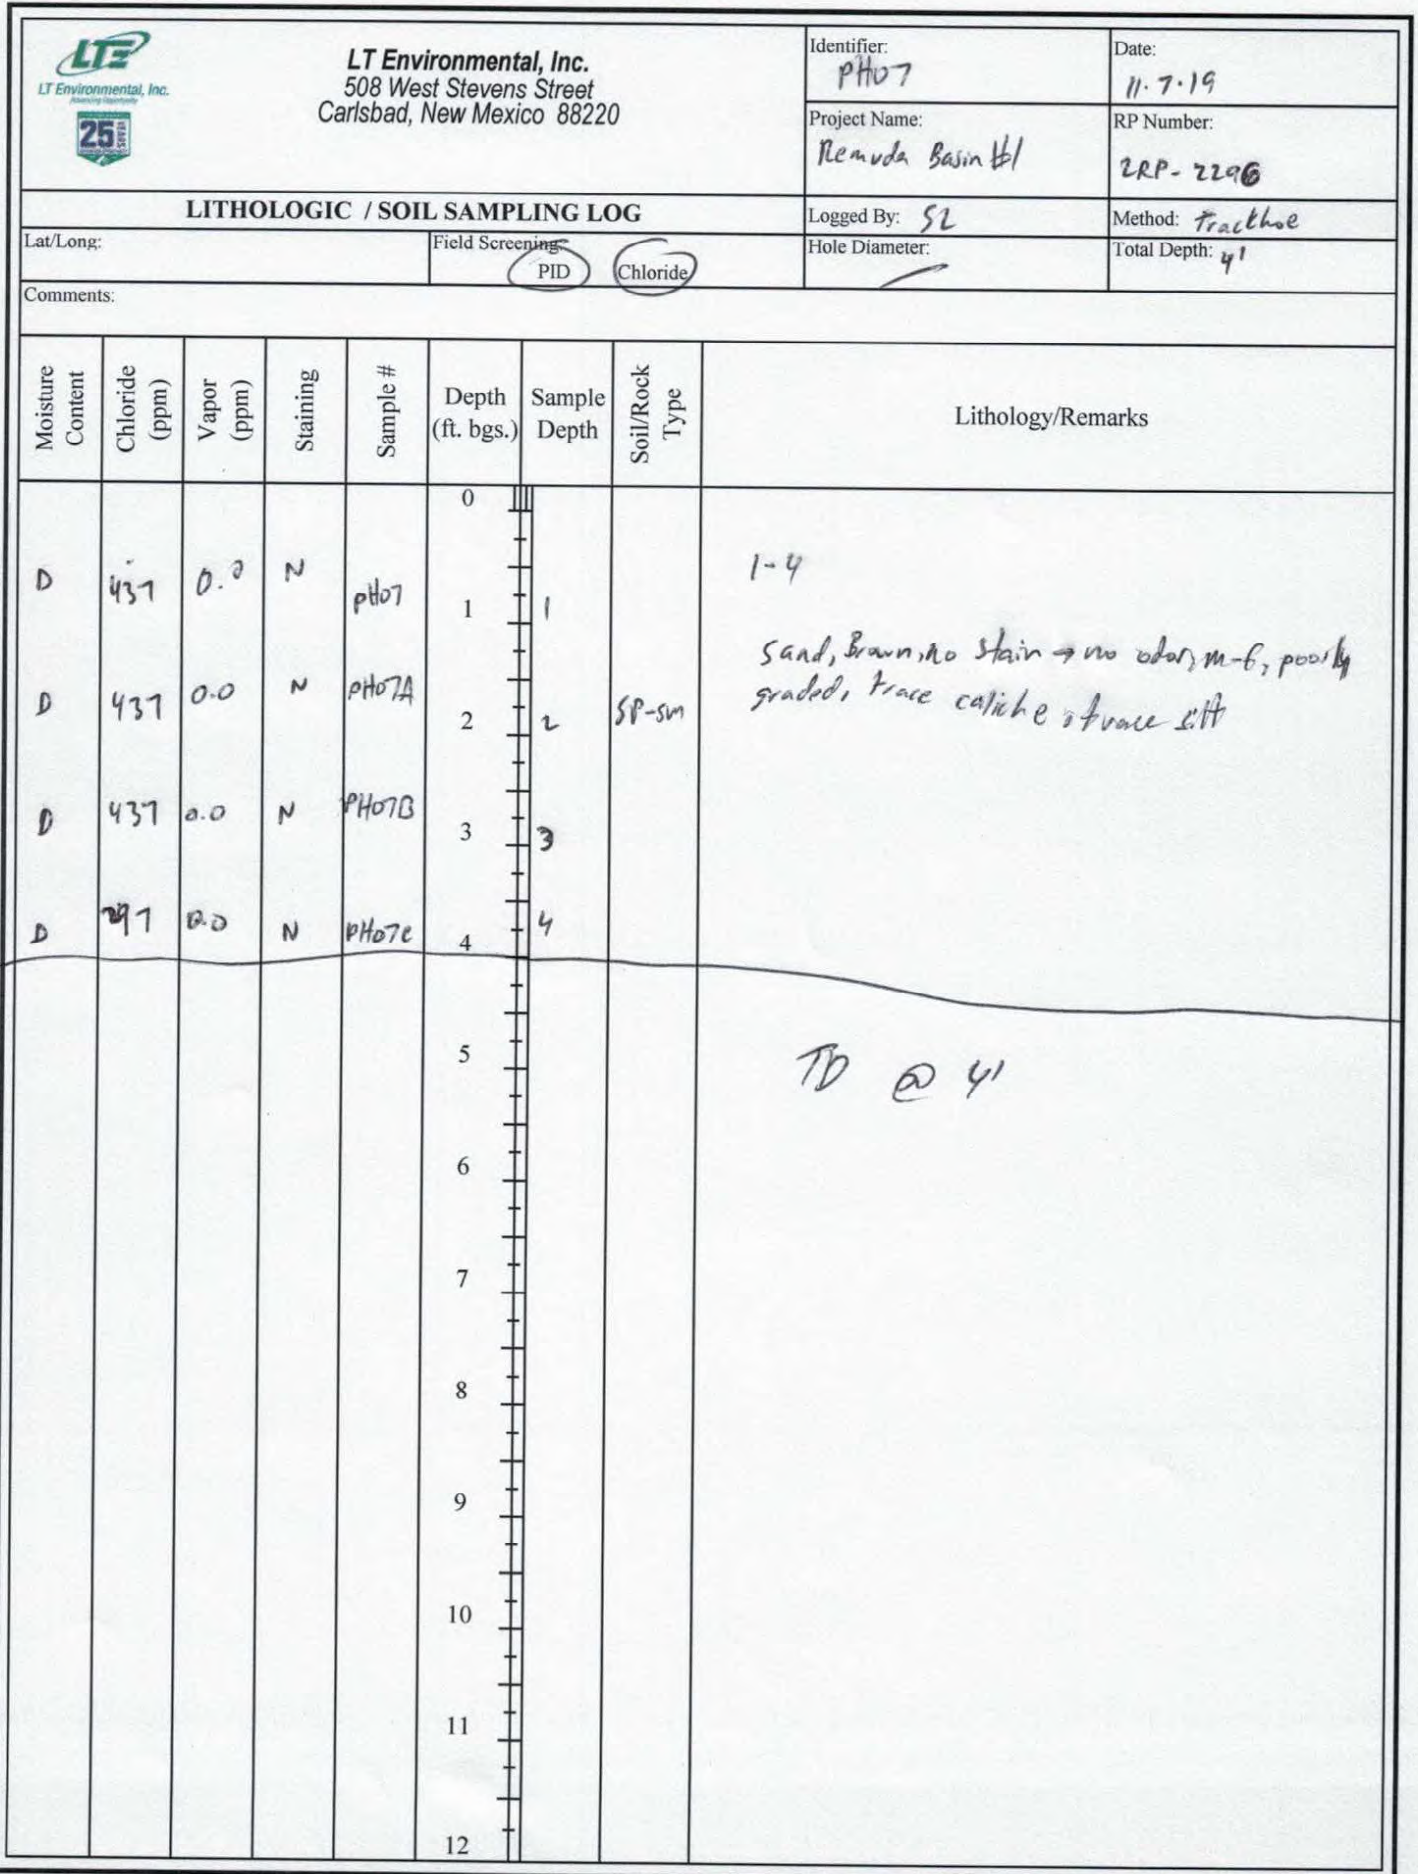 LTE
LT Environmental, Inc.
Advancing Opportunity
25 YEARS
LT Environmental, Inc.
508 West Stevens Street
Carlsbad, New Mexico 88220
Identifier:
PH07
Date:
11.7.19
Project Name:
Remuda Basin #1
RP Number:
2RP-2296
LITHOLOGIC / SOIL SAMPLING LOG
Logged By: SL
Method: Trackhoe
Lat/Long:
Field Screening:
PID Chloride
Hole Diameter:
Total Depth: 4'
Comments:
Moisture Content
Chloride (ppm)
Vapor (ppm)
Staining
Sample #
Depth (ft. bgs.)
Sample Depth
Soil/Rock Type
Lithology/Remarks
0
1-4
D 437 0.0 N PH07 1 1
Sand, Brown, no stain → no odor, m-f, poorly
graded, trace caliche, trace silt
D 437 0.0 N PH07A 2 2 SP-SM
D 437 0.0 N PH07B 3 3
D 297 0.0 N PH07C 4 4
5
TD @ 4'
6
7
8
9
10
11
12